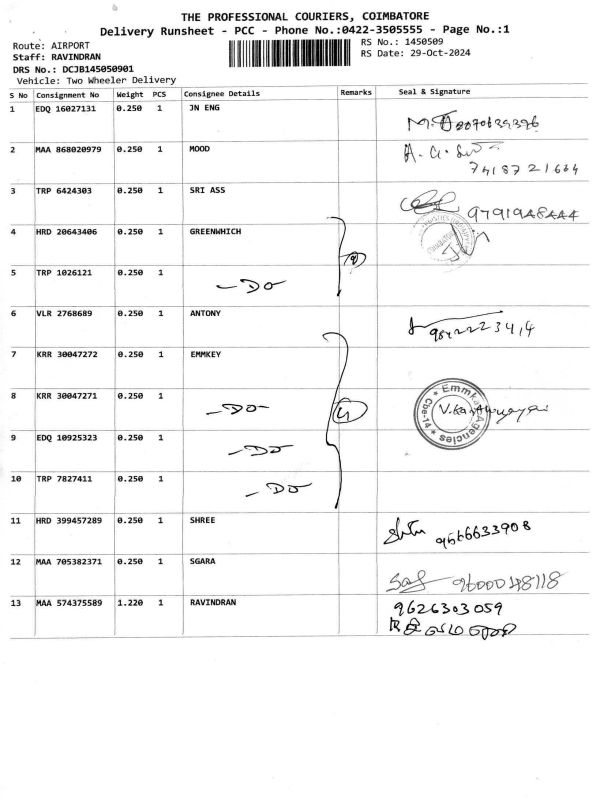 THE PROFESSIONAL COURIERS, COIMBATORE
Delivery Runsheet - PCC - Phone No.:0422-3505555 - Page No.:1
Route: AIRPORT
RS No.: 1450509
Staff: RAVINDRAN
RS Date: 29-Oct-2024
DRS No.: DCJB145050901
Vehicle: Two Wheeler Delivery
S No Consignment No Weight PCS Consignee Details Remarks Seal & Signature
1 EDQ 16027131 0.250 1 JN ENG
2 MAA 868020979 0.250 1 MOOD
7418721664
3 TRP 6424303 0.250 1 SRI ASS
9791948444
4 HRD 20643406 0.250 1 GREENWHICH
5 TRP 1026121 0.250 1 -DO-
6 VLR 2768689 0.250 1 ANTONY
9842223414
7 KRR 30047272 0.250 1 EMMKEY
8 KRR 30047271 0.250 1 -DO- 4
Emmkay Agencies Cbe-14
9 EDQ 10925323 0.250 1 -DO-
10 TRP 7827411 0.250 1 -DO-
11 HRD 399457289 0.250 1 SHREE
9566633908
12 MAA 705382371 0.250 1 SGARA
9600048118
13 MAA 574375589 1.220 1 RAVINDRAN 9626303059